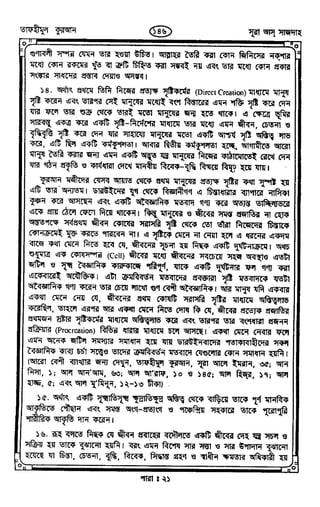 তাফহীমুল কুরআন
১৪৬
সূরা আস্ সাজদাহ
গুণাবলী সম্পন্ন যেমন তার হওয়া উচিত। আল্লাহর তৈরি করা কোন জিনিসের নকশার
মধ্যে কোন রকমের খুঁত বা ত্রুটি চিহ্নিত করা সম্ভবই নয় এবং তার মধ্যে কোন প্রকার
সংস্কার সাধনের প্রস্তাব দেয়াও অসম্ভব।
১৪. অর্থাৎ প্রথমে তিনি নিজের প্রত্যক্ষ সৃষ্টিকর্মের (Direct Creation) মাধ্যমে মানুষ
সৃষ্টি করেন এবং তারপর সেই মানুষের মধ্যেই বংশ বিস্তারের এমন শক্তি সৃষ্টি করে দেন
যার ফলে তার শুক্র থেকে তারই মতো মানুষের জন্ম হতে থাকে। এ ক্ষেত্রে ভূমির
সারবস্তু একত্র করে একটি সৃষ্টি-নির্দেশের মাধ্যমে তার মধ্যে এমন জীবন, চেতনা ও
বুদ্ধিবৃত্তি সৃষ্টি করে দেন যার সাহায্যে মানুষের মতো একটি আশ্চর্য সৃষ্টি অস্তিত্ব লাভ
করে, এটি ছিল একটি কর্মকুশলতা। আবার দ্বিতীয় কর্মকুশলতা হচ্ছে, আগামীতে আরো
মানুষ তৈরি করার জন্য এমন একটি অদ্ভুত যন্ত্র মানুষের নিজের কাঠামোতেই রেখে দেন
যার গঠন প্রকৃতি ও কার্যধারা দেখে মানবীয় বিবেক-বুদ্ধি বিস্ময়ে বিমূঢ় হয়ে যায়।
কুরআন মজীদের যেসব আয়াত থেকে প্রথম মানুষের প্রত্যক্ষ সৃষ্টির কথা সুস্পষ্ট হয়
এটি তার অন্যতম। ডারউইনের যুগ থেকে বিজ্ঞানীগণ এ চিন্তাধারার ব্যাপারে নাসিকা
কুঞ্চন করে আসছেন এবং একটি অবৈজ্ঞানিক মতবাদ গণ্য করে অত্যন্ত তাচ্ছিল্যভরে
একে প্রায় ঠেলে ফেলে দিয়ে থাকেন। কিন্তু মানুষের ও জীবের সমস্ত প্রজাতির না হোক
অন্ততপক্ষে সর্বপ্রথম জীবন কোষের সরাসরি সৃষ্টি থেকে তো তারা নিজেদের চিন্তাকে
কোনক্রমেই মুক্ত করতে পারবেন না। এ সৃষ্টিকে মেনে না নেয়া হলে এ ধরনের একদম
বাজে কথা মেনে নিতে হবে যে, জীবনের সূচনা হয় নিছক একটি দুর্ঘটনাক্রমে। অথচ
শুধুমাত্র এক কোষসম্পন্ন (Cell) জীবের মধ্যে জীবনের সবচেয়ে সহজ অবস্থাও এতটা
জটিল ও সূক্ষ্ম বৈজ্ঞানিক কারুকাজে পরিপূর্ণ, যাকে একটি দুর্ঘটনার ফল গণ্য করা
একেবারেই অযৌক্তিক। এটা ক্রমবিবর্তন মতবাদের প্রবক্তারা সৃষ্টি মতবাদকে যতটা
অবৈজ্ঞানিক গণ্য করেন তার চেয়ে লাখো গুণ বেশী অবৈজ্ঞানিক। আর মানুষ যদি একবার
একথা মেনে নেয় যে, জীবনের প্রথম কোষটি সরাসরি সৃষ্টির মাধ্যমে অস্তিত্বলাভ
করেছিল, তাহলে এরপর আর একথা মেনে নিতে দোষ কি যে, জীবের প্রত্যেক প্রজাতির
প্রথমজন স্রষ্টার সৃষ্টিকর্মের মাধ্যমে অস্তিত্বলাভ করে এবং তারপর তার বংশধারা প্রজনন
প্রক্রিয়ার (Procreation) বিভিন্ন ধারার মাধ্যমে চলে আসছে। একথা মেনে নেবার ফলে
এমন অনেক জটিল সমস্যার সমাধান হয়ে যায় ডারউইনবাদের পতাকাবাহীদের সকল
বৈজ্ঞানিক কাব্য চর্চা সত্ত্বেও তাদের ক্রমবিবর্তন মতবাদে যেগুলোর কোন সমাধান হয়নি।
(আরো বেশী ব্যাখ্যার জন্য দেখুন, তাফহীমুল কুরআন, সূরা আলে ইমরান, ৫৩; আন
নিসা, ১; আল আন'আম, ৬৩; আল আ'রাফ, ১০ ও ১৪৫; আল হিজর, ১৭; আল
হজ্জ, ৫; এবং আল মু'মিনূন, ১২-১৩ টীকা)
১৫. অর্থাৎ একটি সূক্ষ্মাতিসূক্ষ্ম অস্তিত্ব থেকে বাড়িয়ে তাকে পূর্ণ মানবিক
আকৃতিতে পৌঁছান এবং সমস্ত অংগ-প্রত্যংগ ও পঞ্চেন্দ্রিয় সহকারে তাকে পুরোপুরি
শারীরিক আকৃতি দান করেন।
১৬. রূহ বলতে নিছক যে জীবন প্রবাহের বদৌলতে একটি জীবের দেহ যন্ত্র সচল ও
সক্রিয় হয় তাকে বুঝানো হয়নি। বরং এমন বিশেষ সার সত্তা ও সার উপাদান বুঝানো
হয়েছে যা চিন্তা, চেতনা, বুদ্ধি, বিবেক, সিদ্ধান্ত গ্রহণ ও স্বাধীন ক্ষমতার অধিকারী হয়
পারা : ২১